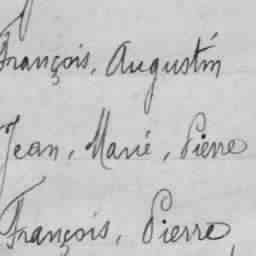 François, Augustin
Jean, Marie, Pierre
François, Pierre,